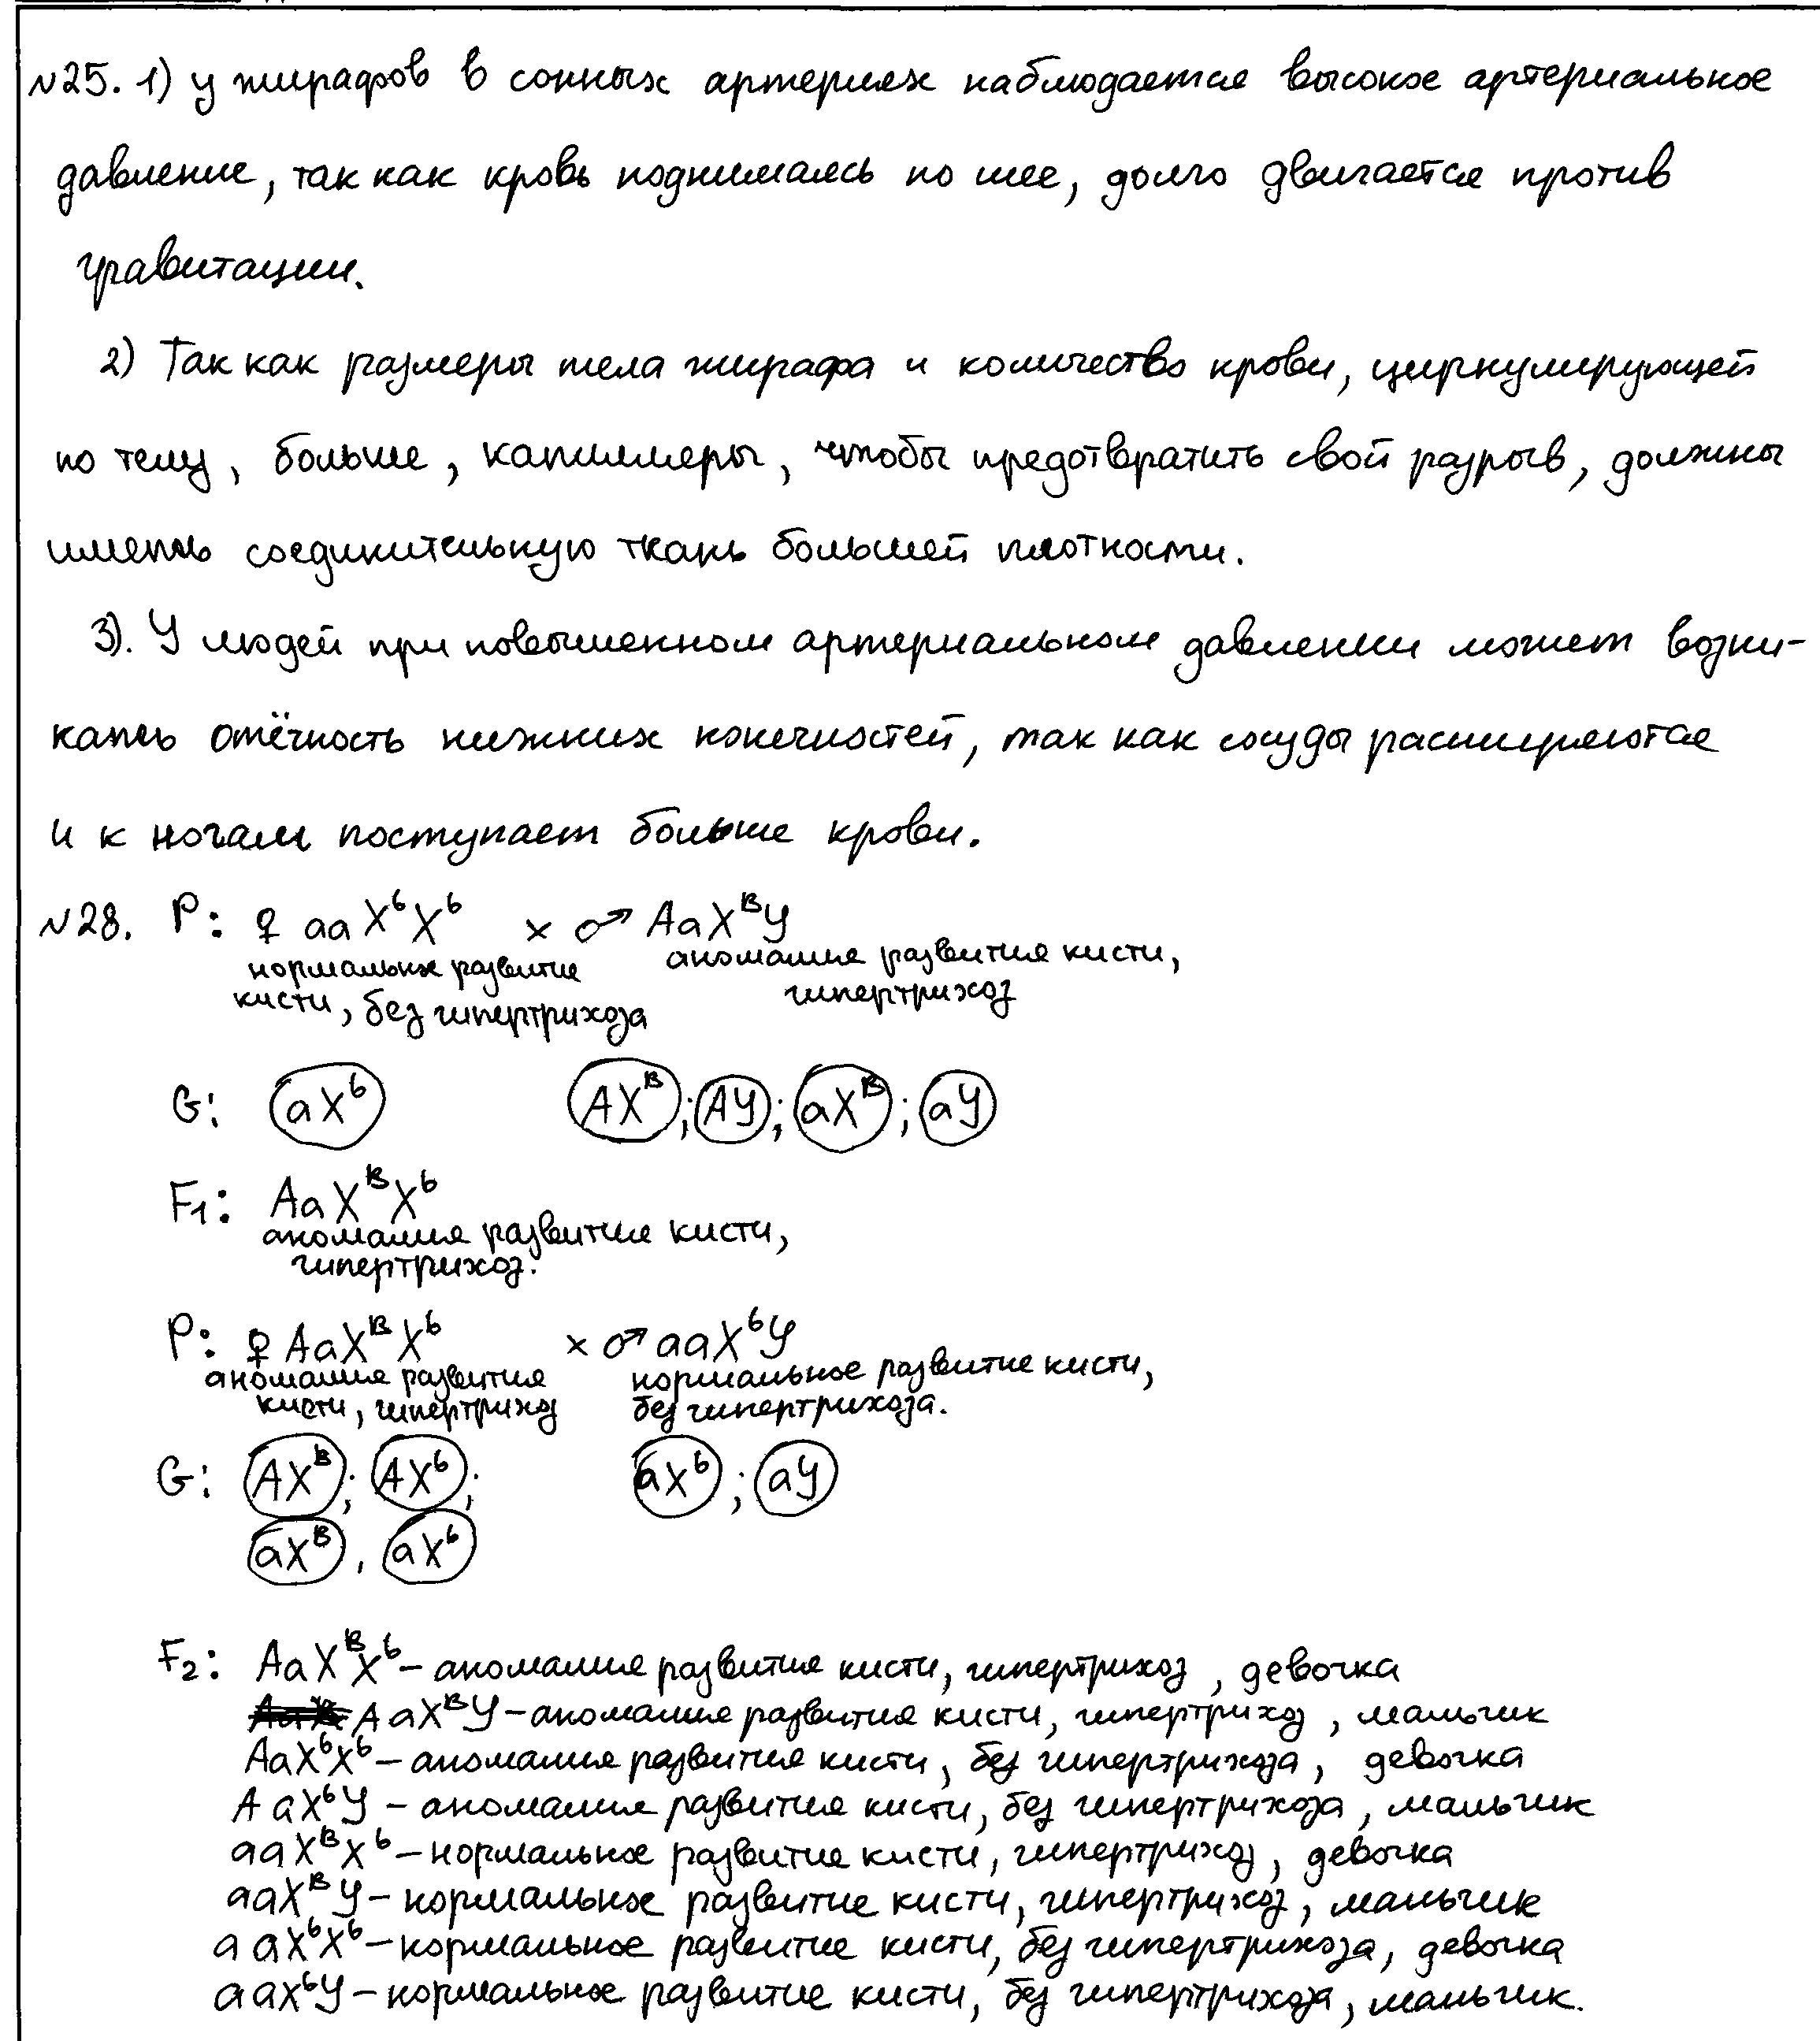 №25. 1) у жирафов в сонных артериях наблюдается высокое артериальное
давление, так как кровь поднимаясь по шее, долго двигается против
гравитации.
2) Так как размеры тела жирафа и количество крови, циркулирующей
по телу, больше, капилляры, чтобы предотвратить свой разрыв, должны
иметь соединительную ткань большей плотности.
3). У людей при повышенном артериальном давлении может возни-
кать отёчность нижних конечностей, так как сосуды расширяются
и к ногам поступает больше крови.
№28. P: ♀ aaXᵇXᵇ × ♂ AaXᴮY
нормальное развитие кисти, без гипертрихоза
аномалия развития кисти, гипертрихоз
G: aXᵇ AXᴮ; AY; aXᴮ; aY
F₁: AaXᴮXᵇ
аномалия развития кисти,
гипертрихоз.
P: ♀ AaXᴮXᵇ × ♂ aaXᵇY
аномалия развития кисти, гипертрихоз
нормальное развитие кисти, без гипертрихоза.
G: AXᴮ; AXᵇ; aXᵇ; aY
aXᴮ, aXᵇ
F₂: AaXᴮXᵇ – аномалия развития кисти, гипертрихоз, девочка
AaXᴮY – аномалия развития кисти, гипертрихоз, мальчик
AaXᵇXᵇ – аномалия развития кисти, без гипертрихоза, девочка
AaXᵇY – аномалия развития кисти, без гипертрихоза, мальчик
aaXᴮXᵇ – нормальное развитие кисти, гипертрихоз, девочка
aaXᴮY – нормальное развитие кисти, гипертрихоз, мальчик
aaXᵇXᵇ – нормальное развитие кисти, без гипертрихоза, девочка
aaXᵇY – нормальное развитие кисти, без гипертрихоза, мальчик.